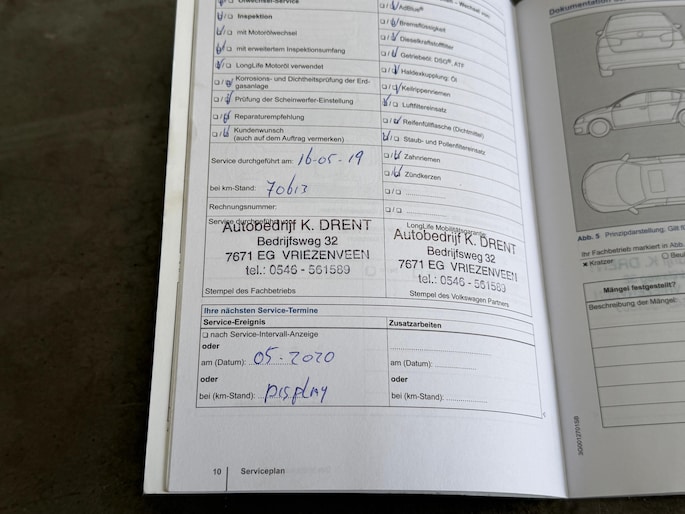 ☑/❏ Inspektion
☑/❏ mit Motorölwechsel
☑/❏ mit erweitertem Inspektionsumfang
☑/❏ LongLife Motoröl verwendet
❏/☑ Korrosions- und Dichtheitsprüfung der Erd-
gasanlage
☑ Prüfung der Scheinwerfer-Einstellung
❏/☑ Reparaturempfehlung
❏/☑ Kundenwunsch
(auch auf dem Auftrag vermerken)
Service durchgeführt am: 16-05-19
bei km-Stand: 70613
Rechnungsnummer:
Autobedrijf K. DRENT
Bedrijfsweg 32
7671 EG VRIEZENVEEN
tel.: 0546 - 561589
Stempel des Fachbetriebs
❏/☑ AdBlue®
❏/☑ Bremsflüssigkeit
❏/☑ Dieselkraftstofffilter
❏/☑ Getriebeöl: DSG®, ATF
❏/☑ Haldexkupplung: Öl
❏/☑ Keilrippenriemen
☑/❏ Luftfiltereinsatz
❏/☑ Reifenfüllflasche (Dichtmittel)
☑/❏ Staub- und Pollenfiltereinsatz
❏/☑ Zahnriemen
❏/☑ Zündkerzen
❏/❏
❏/❏
LongLife Mobilitätsgarantie
Autobedrijf K. DRENT
Bedrijfsweg 32
7671 EG VRIEZENVEEN
tel.: 0546 - 561589
Stempel des Volkswagen Partners
Ihre nächsten Service-Termine
Service-Ereignis
Zusatzarbeiten
❏ nach Service-Intervall-Anzeige
oder
am (Datum): 05-2020
am (Datum):
oder
oder
bei (km-Stand): Display
bei (km-Stand):
10
Serviceplan
Dokumentation
Abb. 5 Prinzipdarstellung. Gilt
Ihr Fachbetrieb markiert in Abb.
× Kratzer
O Beul
Mängel festgestellt?
Beschreibung der Mängel:
3G0012701SB